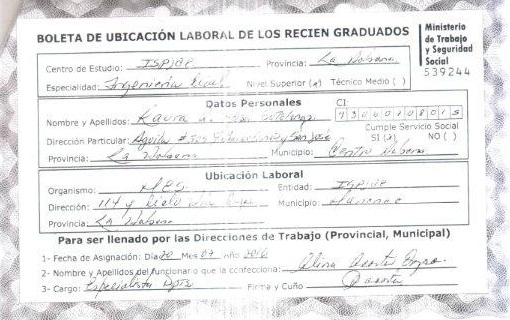 BOLETA DE UBICACIÓN LABORAL DE LOS RECIEN GRADUADOS
Ministerio
de Trabajo
y Seguridad
Social
539244
Centro de Estudio: ISPJAE Provincia: La Habana
Especialidad: Ingeniería Nivel Superior (x) Técnico Medio ( )
Datos Personales
CI:
Nombre y Apellidos:
Cumple Servicio Social
Dirección Particular: Aguila # y San José SI (x) NO ( )
Provincia: La Habana Municipio: Centro Habana
Ubicación Laboral
Organismo: MES Entidad: ISPJAE
Dirección: 114 y Municipio: Marianao
Provincia: La Habana
Para ser llenado por las Direcciones de Trabajo (Provincial, Municipal)
1- Fecha de Asignación: Día 20 Mes 07 Año
2- Nombre y Apellidos del funcionario que la confecciona: Alina Acosta
3- Cargo: Especialista Firma y Cuño